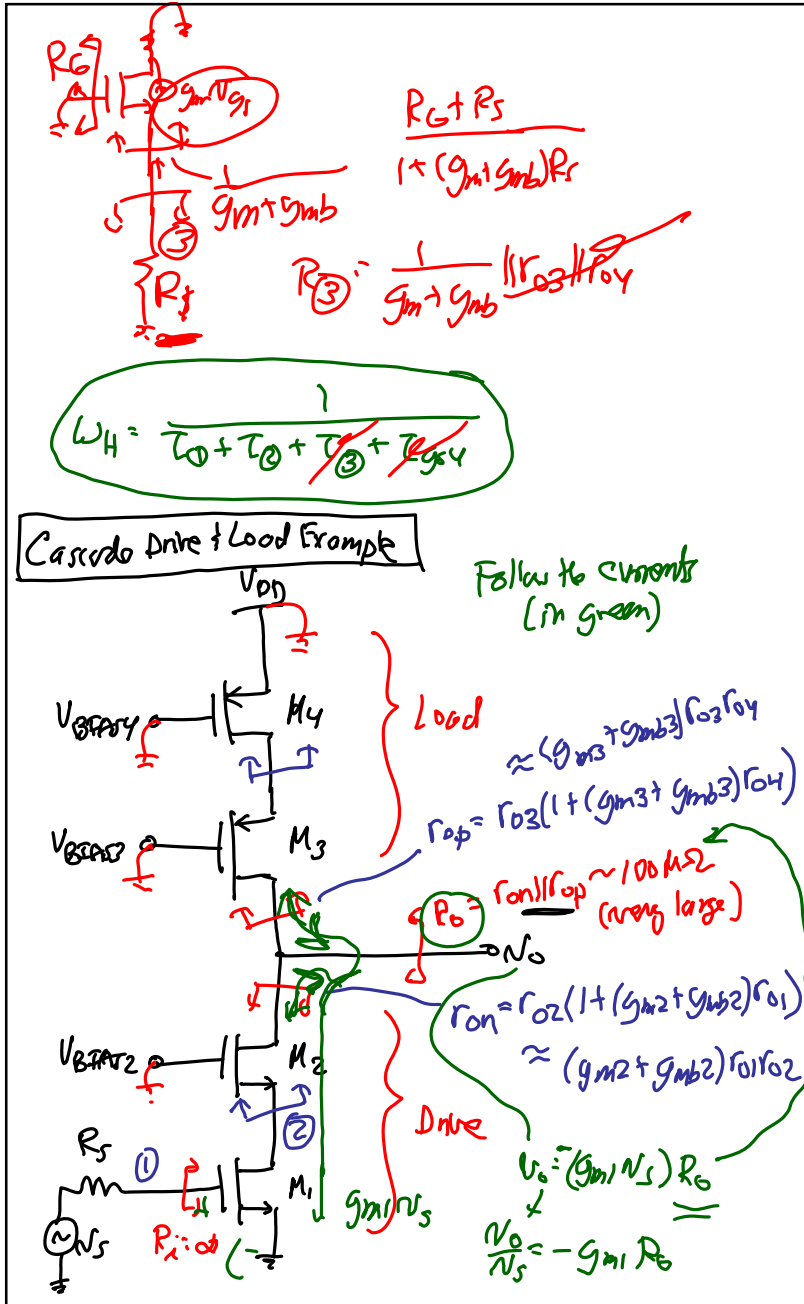 R_G
g_m v_gs
(R_G + R_S) / (1 + (g_m + g_mb) R_S)
1 / (g_m + g_mb)
③
R_S
R_③ = 1 / (g_m + g_mb) || r_o3 || r_o4
ω_H = 1 / (τ_① + τ_② + τ_③ + τ_gs4)
Cascode Drive & Load Example
V_DD
Follow the currents
(in green)
V_BIAS4
M4
Load
≈ (g_m3 + g_mb3) r_o3 r_o4
r_op = r_o3 (1 + (g_m3 + g_mb3) r_o4)
V_BIAS3
M3
R_o = r_on || r_op ~ 100MΩ
(very large)
v_o
r_on = r_o2 (1 + (g_m2 + g_mb2) r_o1)
≈ (g_m2 + g_mb2) r_o1 r_o2
V_BIAS2
M2
②
Drive
R_S
①
M1
g_m1 v_s
v_o = -(g_m1 v_s) R_o
v_s
R_i = ∞
v_o / v_s = -g_m1 R_o